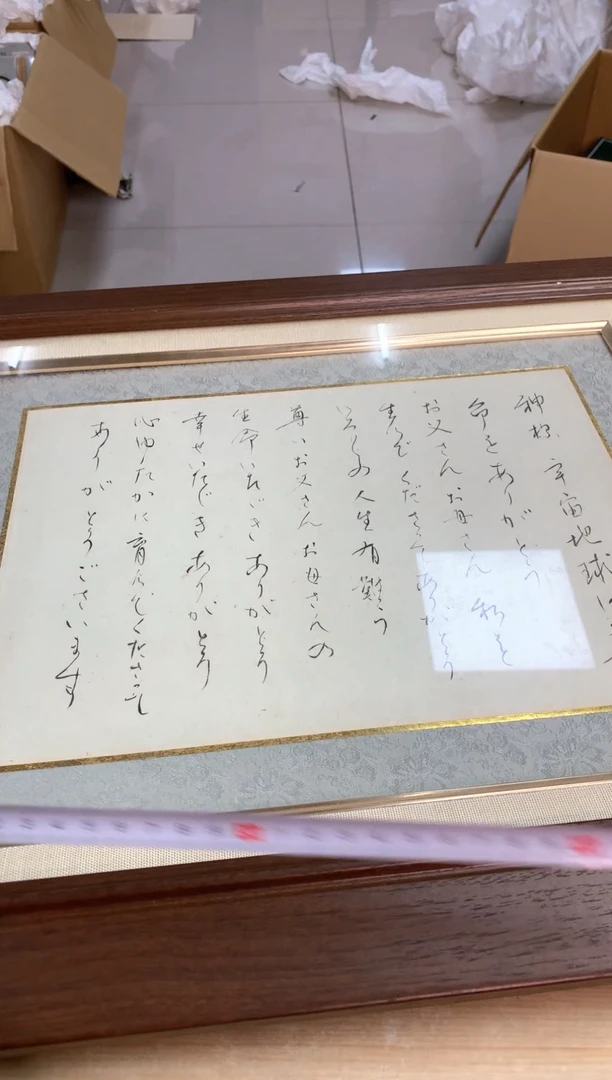 神様 宇宙地球に
命をありがとう
お父さん お母さん 私を
生んでくださってありがとう
人生有難う
尊いお父さん お母さんの
生命いただき ありがとう
幸せいただき ありがとう
心ゆたかに育んでくださって
ありがとうございます